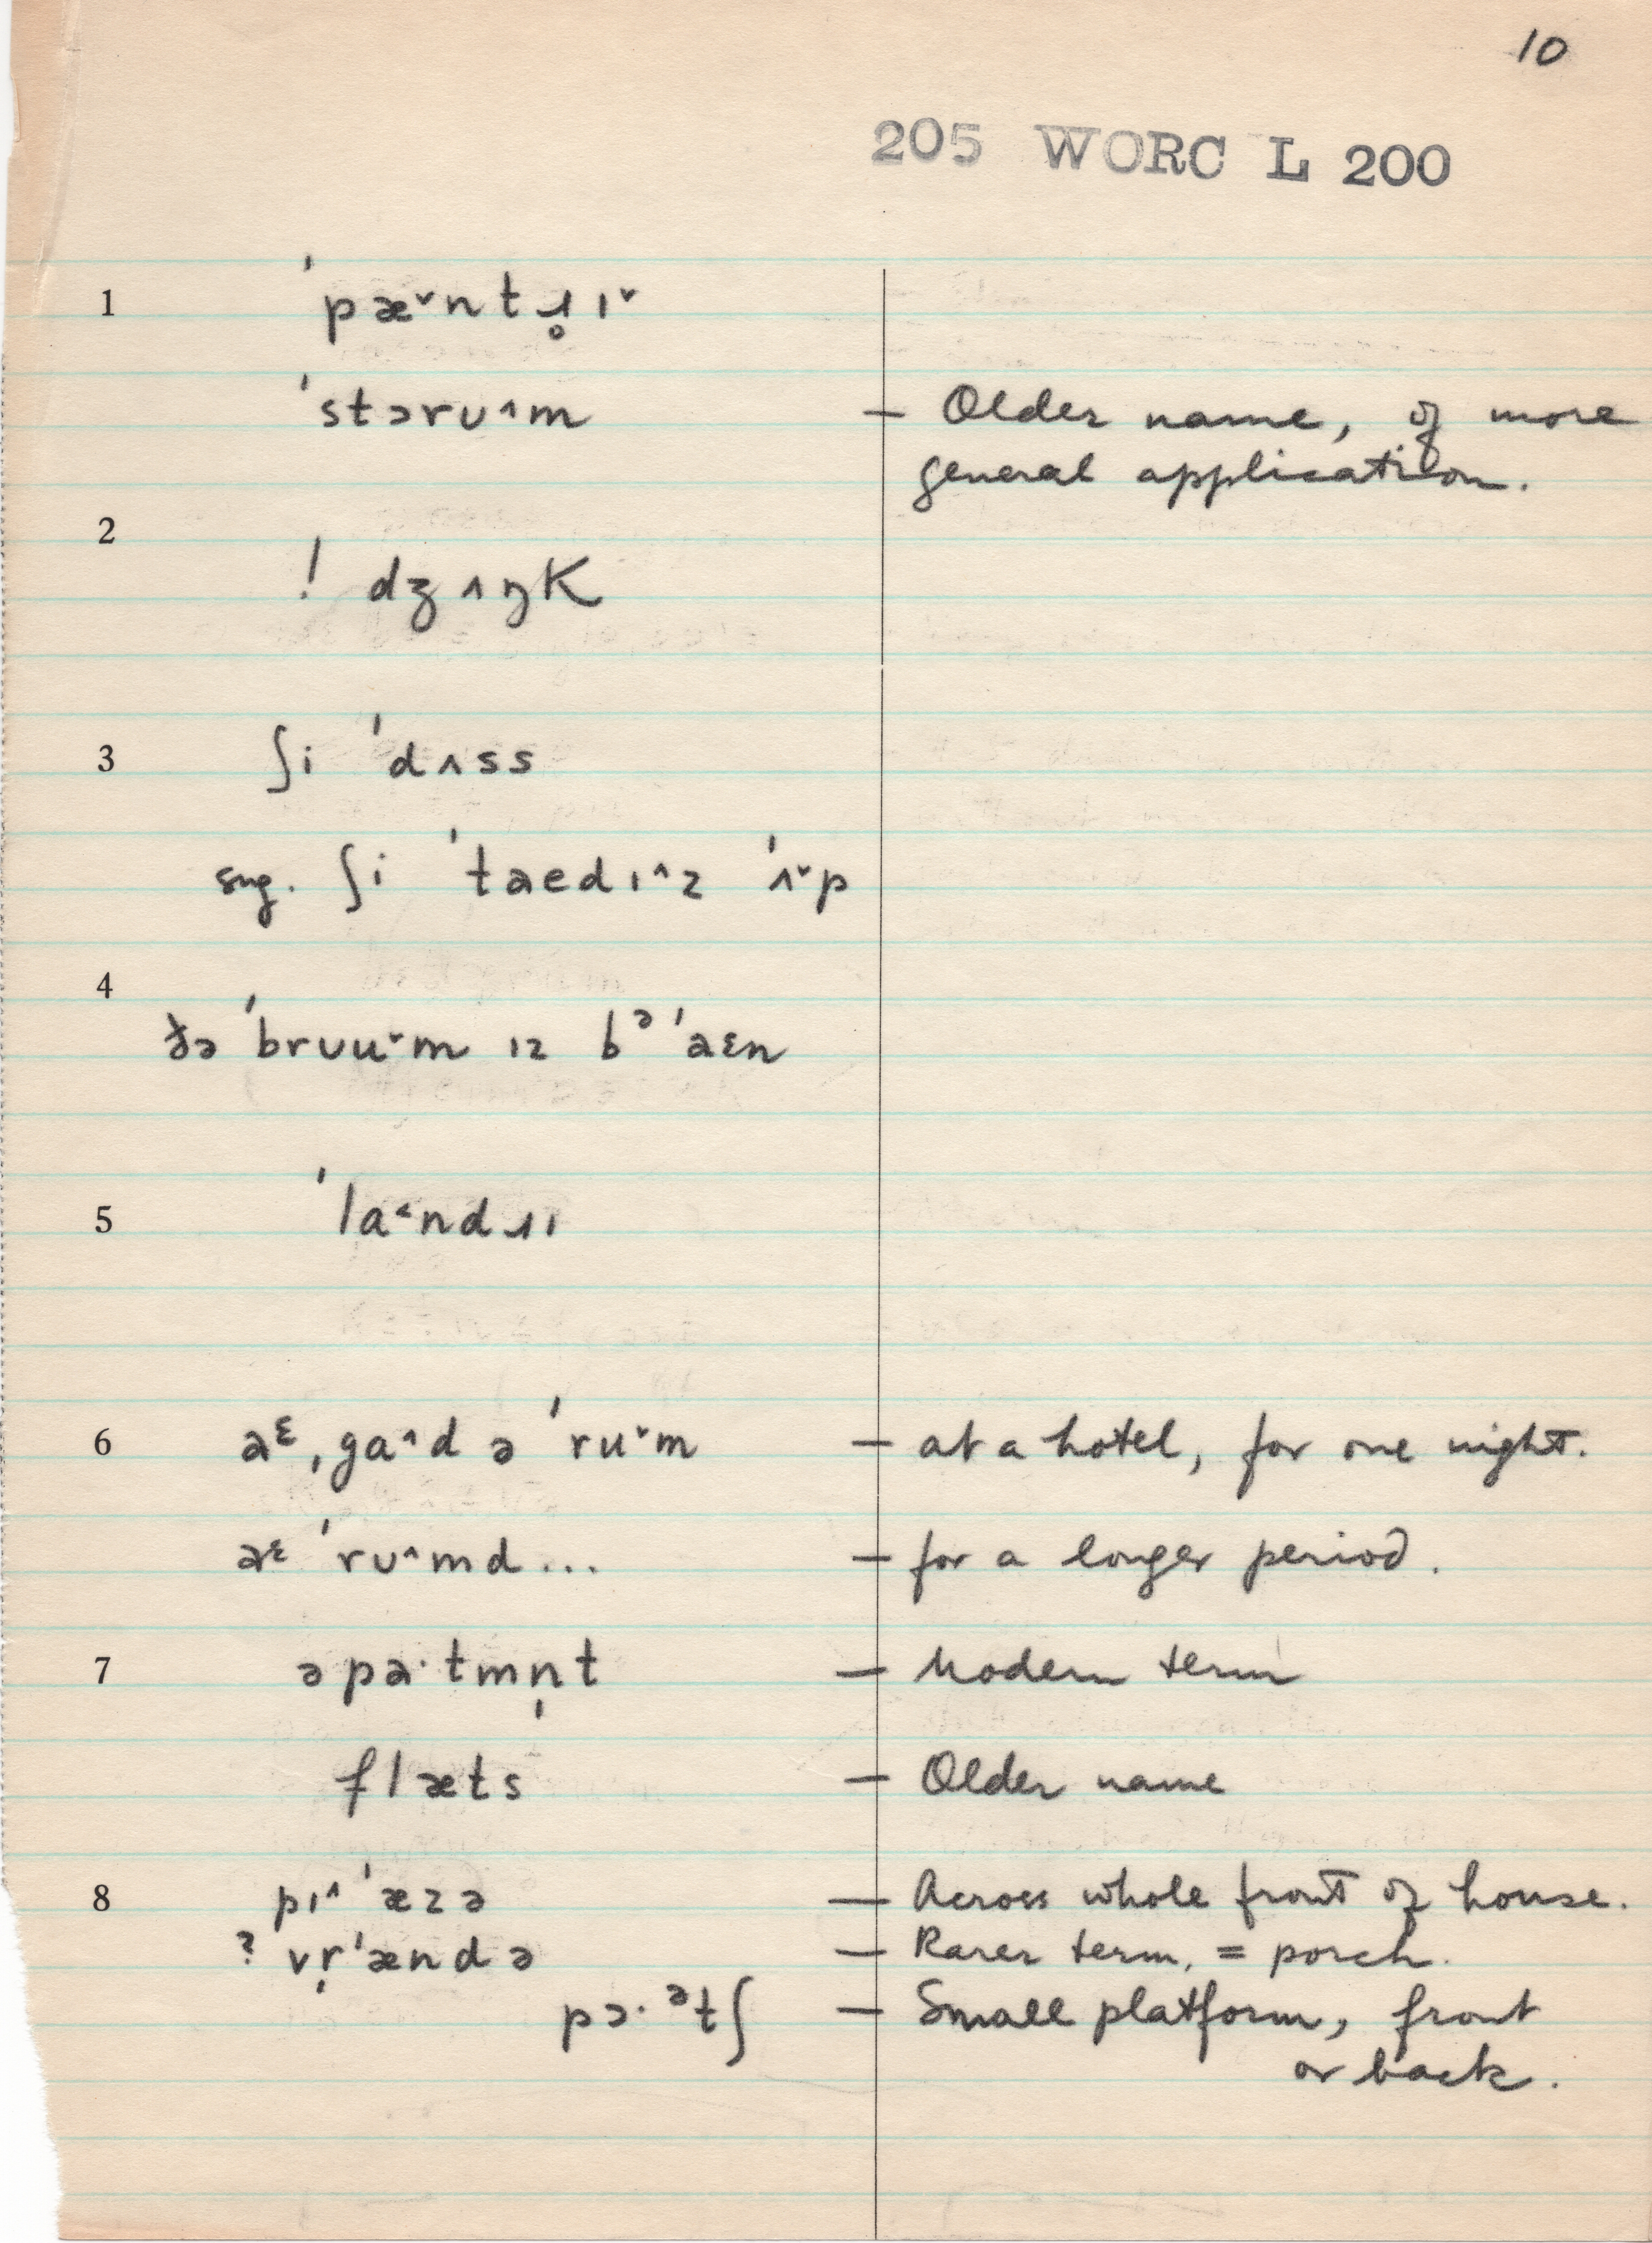 10
205 WORC L 200
1 ˈpæ˅ntɹ̥ɪ˅
ˈstɔrʊ^m — Older name, of more
general application.
2
! dʒʌŋK
3 ʃi ˈdʌss
sug. ʃi ˈtaedɪ^z ˈʌ˅p
4
ðə ˈbrʊu˅m ɪz bᵊ ˈaɛn
5 ˈla˂ndɹɪ
6 aᵋ ˌga^d ə ˈru˅m — at a hotel, for one night.
aᵋ ˈrʊ^md... — for a longer period.
7 əpa·tmn̩t — Modern term
flæts — Older name
8 pɪ^ ˈæzə — Across whole front of house.
? vr̩ˈændə — Rarer term, = porch.
pɔ·ᵊtʃ — Small platform, front
or back.